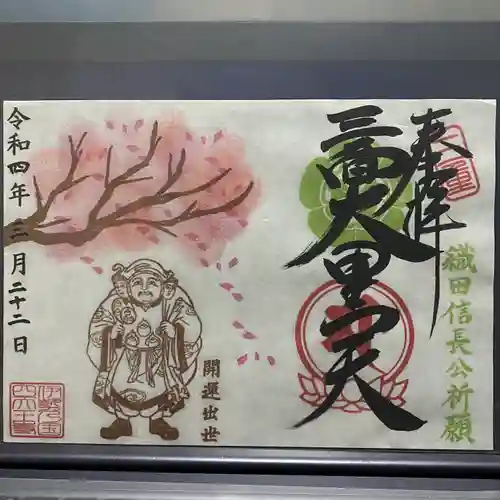 奉拝
三面大黒天
織田信長公祈願
開運出世
令和四年三月二十二日